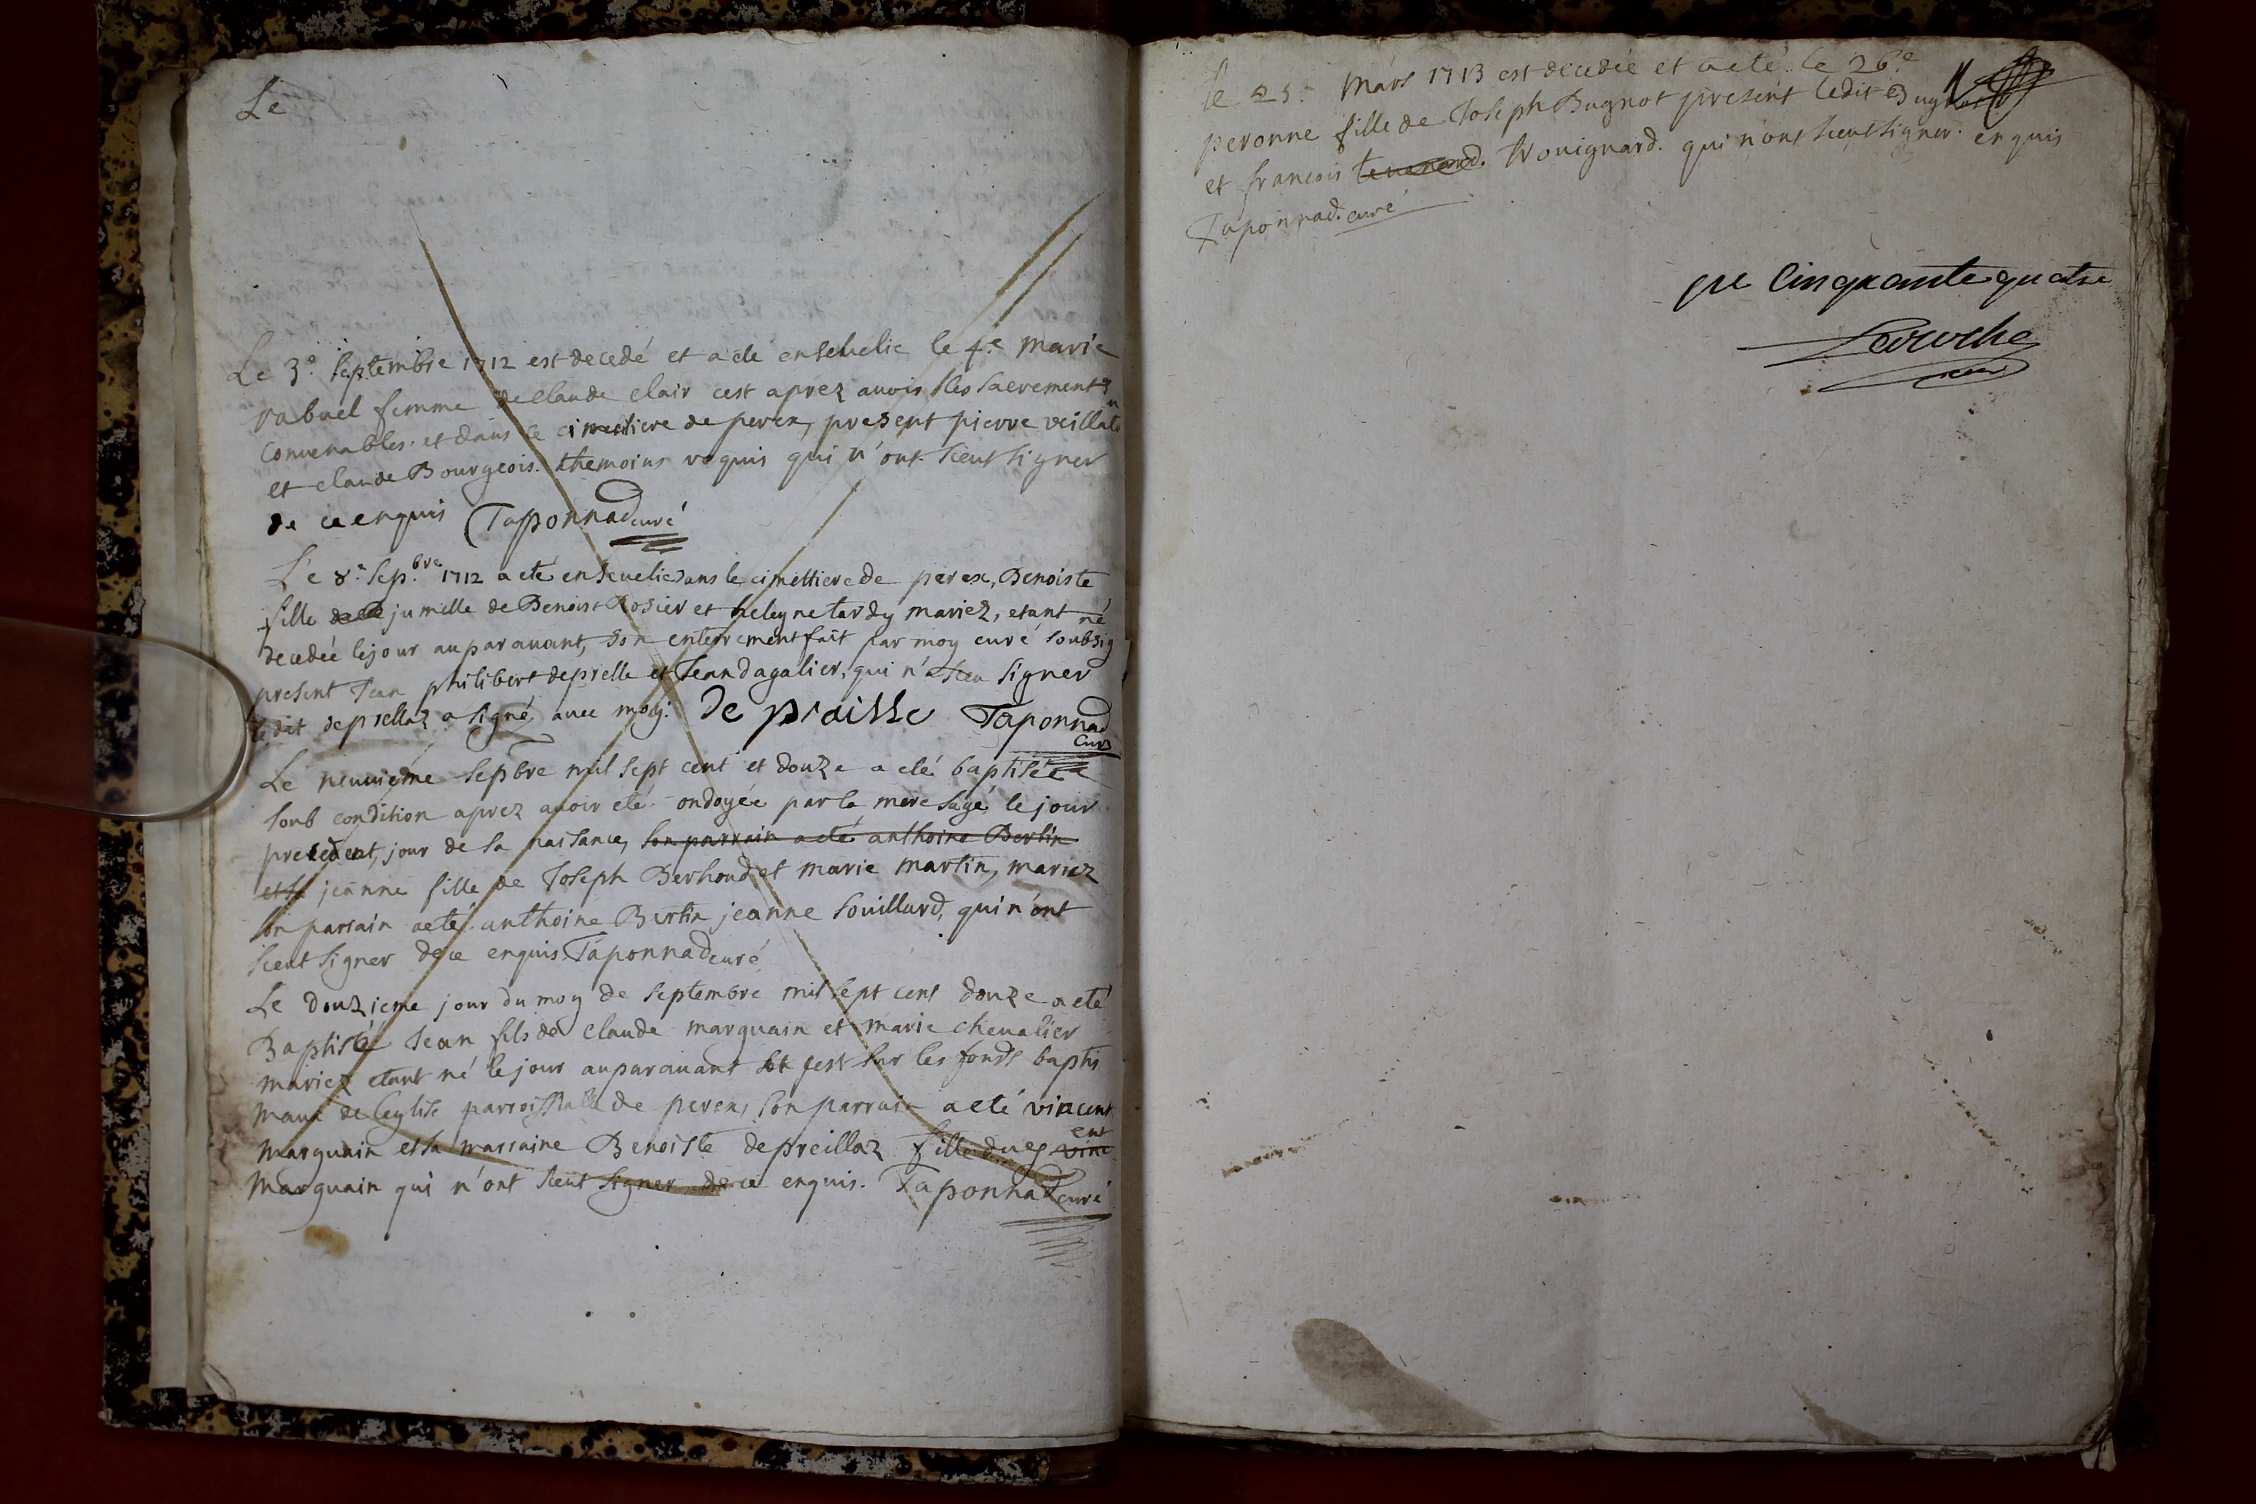 Le
Le 3e septembre 1712 est decedé et a eté ensevelie le 4e marie
rabuel femme de claude clair cest aprez avoir les sacrements
convenables et dans le cimetiere de perex, present pierre veillat
et claude Bourgeois themoins requis qui n'ont sceut signer
de ce enquis Taponnad curé
Le 8e sepbre 1712 a eté ensevelie dans le cimettiere de perex, Benoiste
fille jumelle de Benoist Rosier et heleyne tardy mariez, etant
decedée le jour auparavant, son enterrement fait par moy curé soubsigné
present Jean philibert deprelle et Jean dagalier, qui n'a sceu signer
ledit deprellaz a signé avec moy. De praille Taponnad
curé
Le neuvieme sepbre mil sept cent et douze a eté baptisée
soub condition aprez avoir eté ondoyée par la mere sage le jour
precedent, jour de sa naissance, son parrain a eté anthoine Bertin
et sa jeanne fille de Joseph Berhoud et marie martin, mariez
son parrain a eté anthoine Bertin jeanne souillard, qui n'ont
sceut signer de ce enquis Taponnad curé
Le douzieme jour du moy de septembre mil sept cent douze a eté
Baptisé Jean fils de claude marguain et marie chevalier
mariez etant né le jour auparavant sur les fonds baptis
maux de leglise parroissialle de perex, son parrain a eté vincent
marguain et sa marraine Benoiste depreillaz fille vinc
ent
marguain qui n'ont sceut signer de ce enquis. Taponnad curé
le 25e Mars 1713 est decedée et a eté le 26e
peronne fille de Joseph Bugnot present ledit Bugnot
et francois Wouignard. qui n'ont sceut signer. enquis
Taponnad. curé
cinquante quatre
Laroche